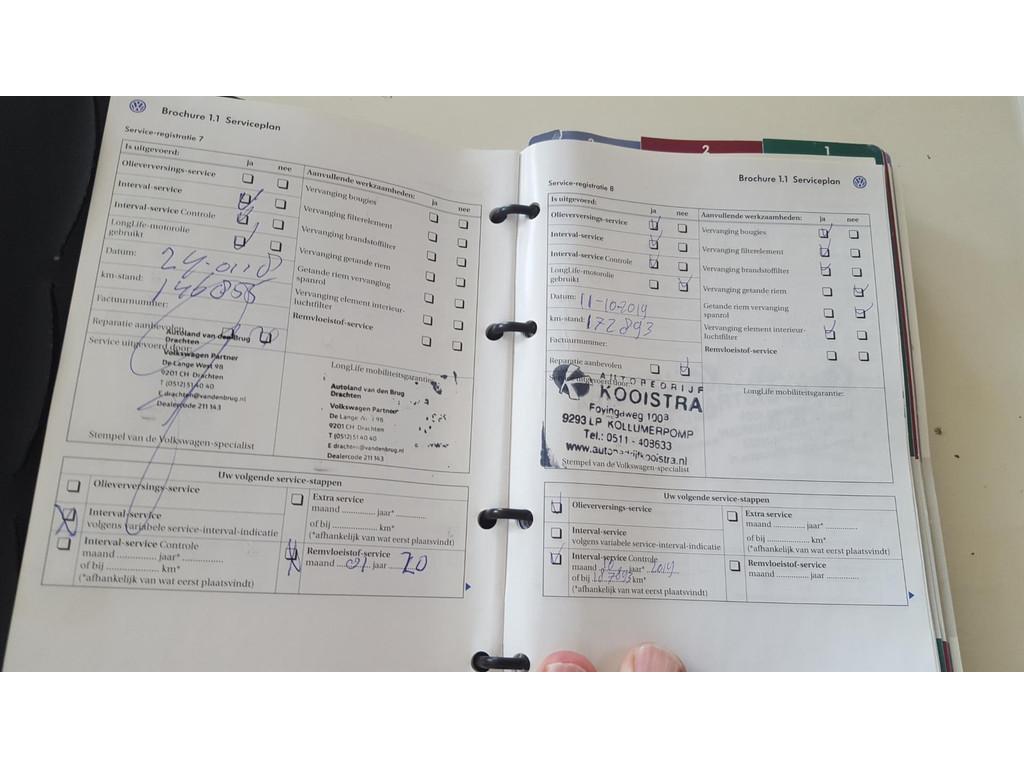 Brochure 1.1 Serviceplan
Service-registratie 7
Is uitgevoerd:
ja nee
Olieverversings-service
Interval-service
Interval-service Controle
LongLife-motorolie
gebruikt
Datum: 24-01-18
km-stand: 146855
Factuurnummer:
Reparatie aanbevolen
Service uitgevoerd door:
Autoland van den Brug
Drachten
Volkswagen Partner
De Lange West 98
9201 CH Drachten
T (0512) 51 40 40
E drachten@vandenbrug.nl
Dealercode 211 143
Stempel van de Volkswagen-specialist
Aanvullende werkzaamheden:
ja nee
Vervanging bougies
Vervanging filterelement
Vervanging brandstoffilter
Vervanging getande riem
Getande riem vervanging
spanrol
Vervanging element interieur-
luchtfilter
Remvloeistof-service
LongLife mobiliteitsgarantie:
Autoland van den Brug
Drachten
Volkswagen Partner
De Lange 98
9201 CH Drachten
T (0512) 51 40 40
E drachten@vandenbrug.nl
Dealercode 211 143
Uw volgende service-stappen
Olieverversings-service
Interval-service
volgens variabele service-interval-indicatie
Interval-service Controle
maand ............ jaar* ............
of bij ............ km*
(*afhankelijk van wat eerst plaatsvindt)
Extra service
maand ............ jaar* ............
of bij ............ km*
(*afhankelijk van wat eerst plaatsvindt)
Remvloeistof-service
maand 01 jaar 20
2 1
Brochure 1.1 Serviceplan
Service-registratie 8
Is uitgevoerd:
ja nee
Olieverversings-service
Interval-service
Interval-service Controle
LongLife-motorolie
gebruikt
Datum: 11-10-2019
km-stand: 172893
Factuurnummer:
Reparatie aanbevolen
AUTOBEDRIJF
KOOISTRA
Foyingaweg 100a
9293 LP KOLLUMERPOMP
Tel.: 0511 - 408633
www.autobedrijfkooistra.nl
Stempel van de Volkswagen-specialist
Aanvullende werkzaamheden:
ja nee
Vervanging bougies
Vervanging filterelement
Vervanging brandstoffilter
Vervanging getande riem
Getande riem vervanging
spanrol
Vervanging element interieur-
luchtfilter
Remvloeistof-service
LongLife mobiliteitsgarantie:
Uw volgende service-stappen
Olieverversings-service
Interval-service
volgens variabele service-interval-indicatie
Interval-service Controle
maand 10 jaar* 2019
of bij 187893 km*
(*afhankelijk van wat eerst plaatsvindt)
Extra service
maand ............ jaar* ............
of bij ............ km*
(*afhankelijk van wat eerst plaatsvindt)
Remvloeistof-service
maand ............ jaar ............